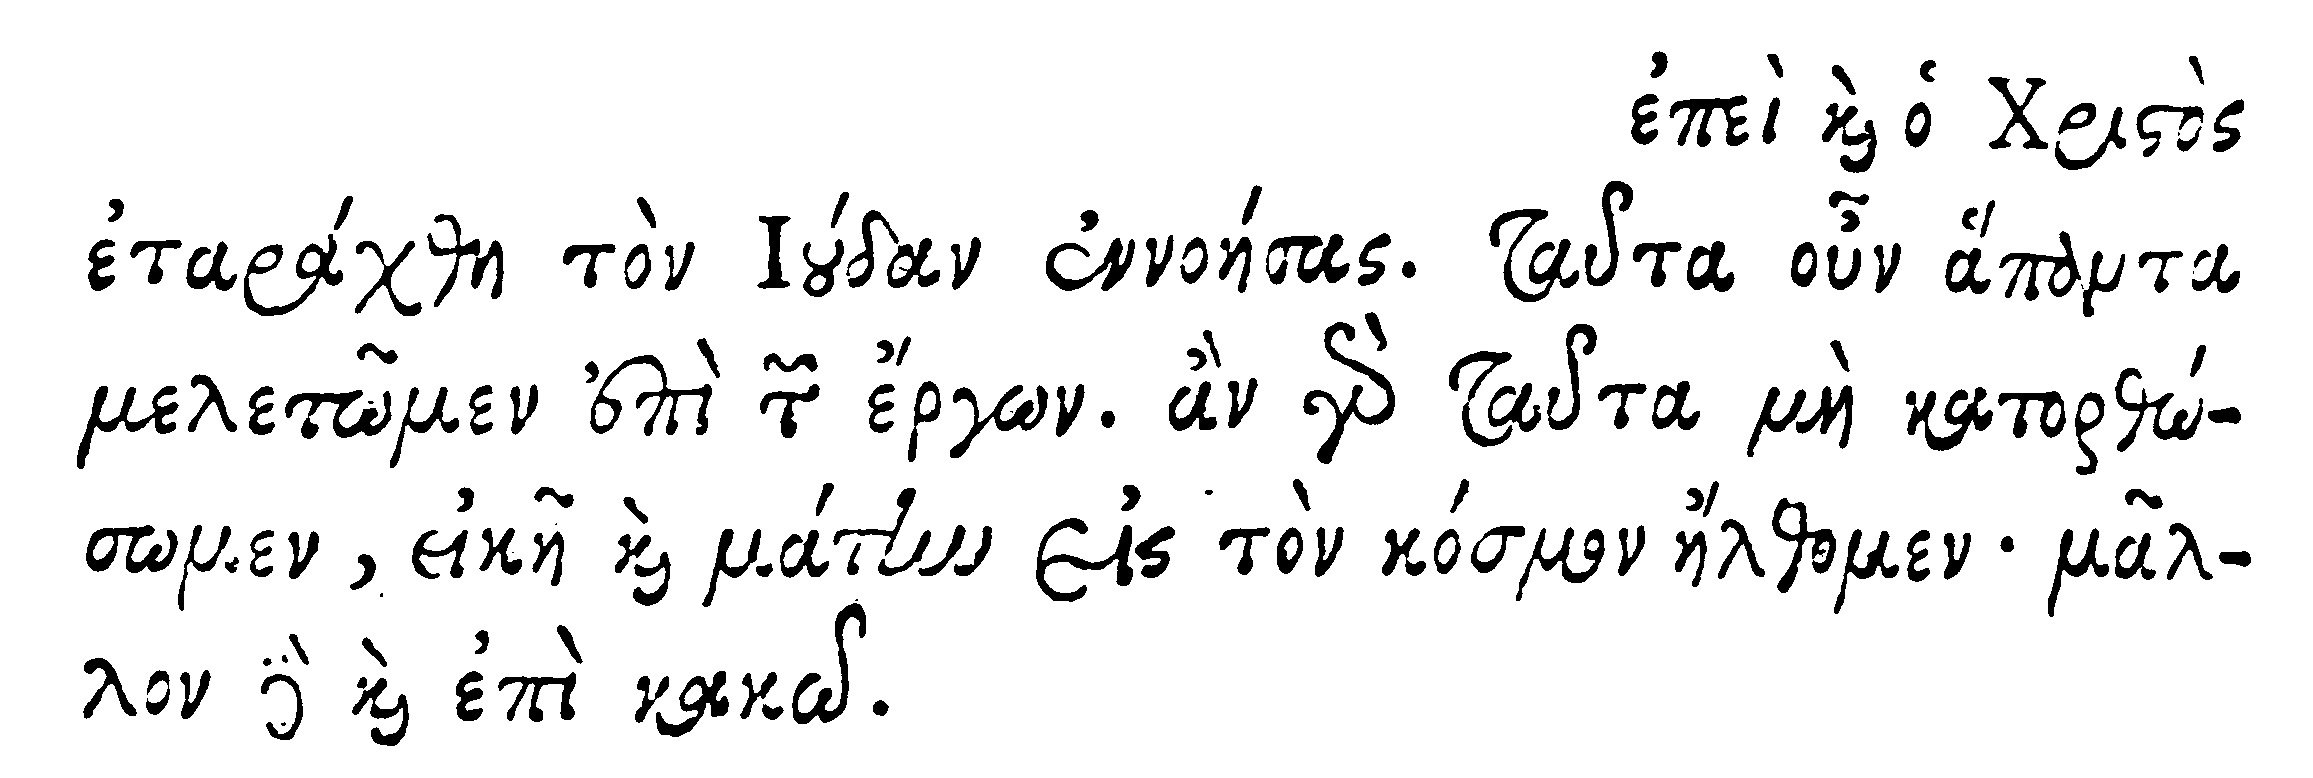 ἐπεὶ καὶ ὁ Χριστὸς
ἐταράχθη τὸν Ιούδαν ἐννοήσας. Ταῦτα οὖν ἅπαντα
μελετῶμεν ἐπὶ τῶν ἔργων. ἂν γὰρ ταῦτα μὴ κατορθώ-
σωμεν, εἰκῆ καὶ μάτην εἰς τὸν κόσμον ἤλθομεν· μᾶλ-
λον δὲ καὶ ἐπὶ κακῷ.